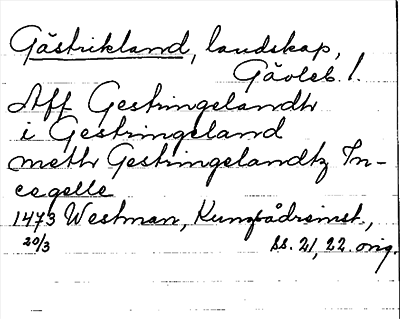 Gästrikland, landskap,
Gävleb. l.
Aff Gestringelandh
i Gestringeland
meth Gestringelandz In-
cegelle
1473 Westman, Kungsådreinst.,
20/3 ss. 21, 22. orig.